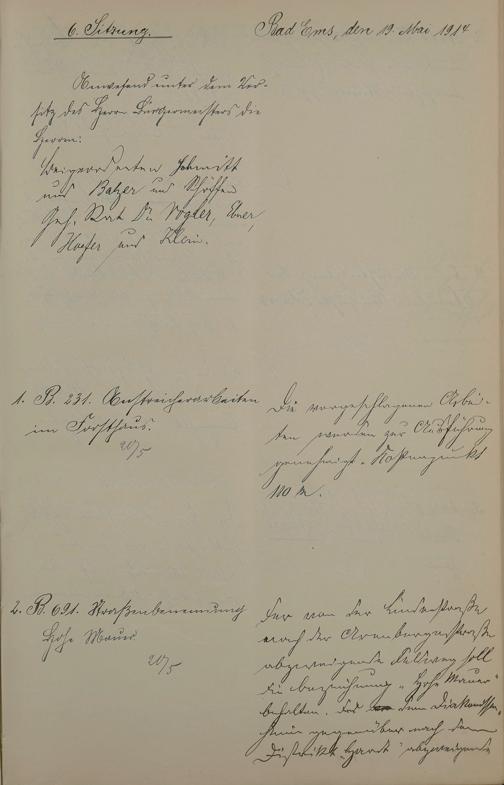 6. Sitzung.
Bad Ems, den 19. Mai 1914
Anwesend unter dem Vor-
sitz des Herrn Bürgermeisters die
Herren:
Beigeordneten Schmitt
und Balzer und Schöffen
Geh. Rat Dr. Vogler, Ebner,
Hoefer und Klein.
1. B. 231. Anstreicherarbeiten
im Forsthaus.
20/5
Die vorgeschlagenen Arbei-
ten werden zur Ausführung
genehmigt. Kostenpunkt
110 M.
2. B. 691. Straßenbenennung
Hohe Mauer
20/5
Der von der Lindenstraße
nach der Arenbergerstraße
abzweigende Fußweg soll
die Bezeichnung „Hohe Mauer"
behalten. Das dem Diakonissen-
heim gegenüber nach dem
Distrikt „Hardt" abzweigende